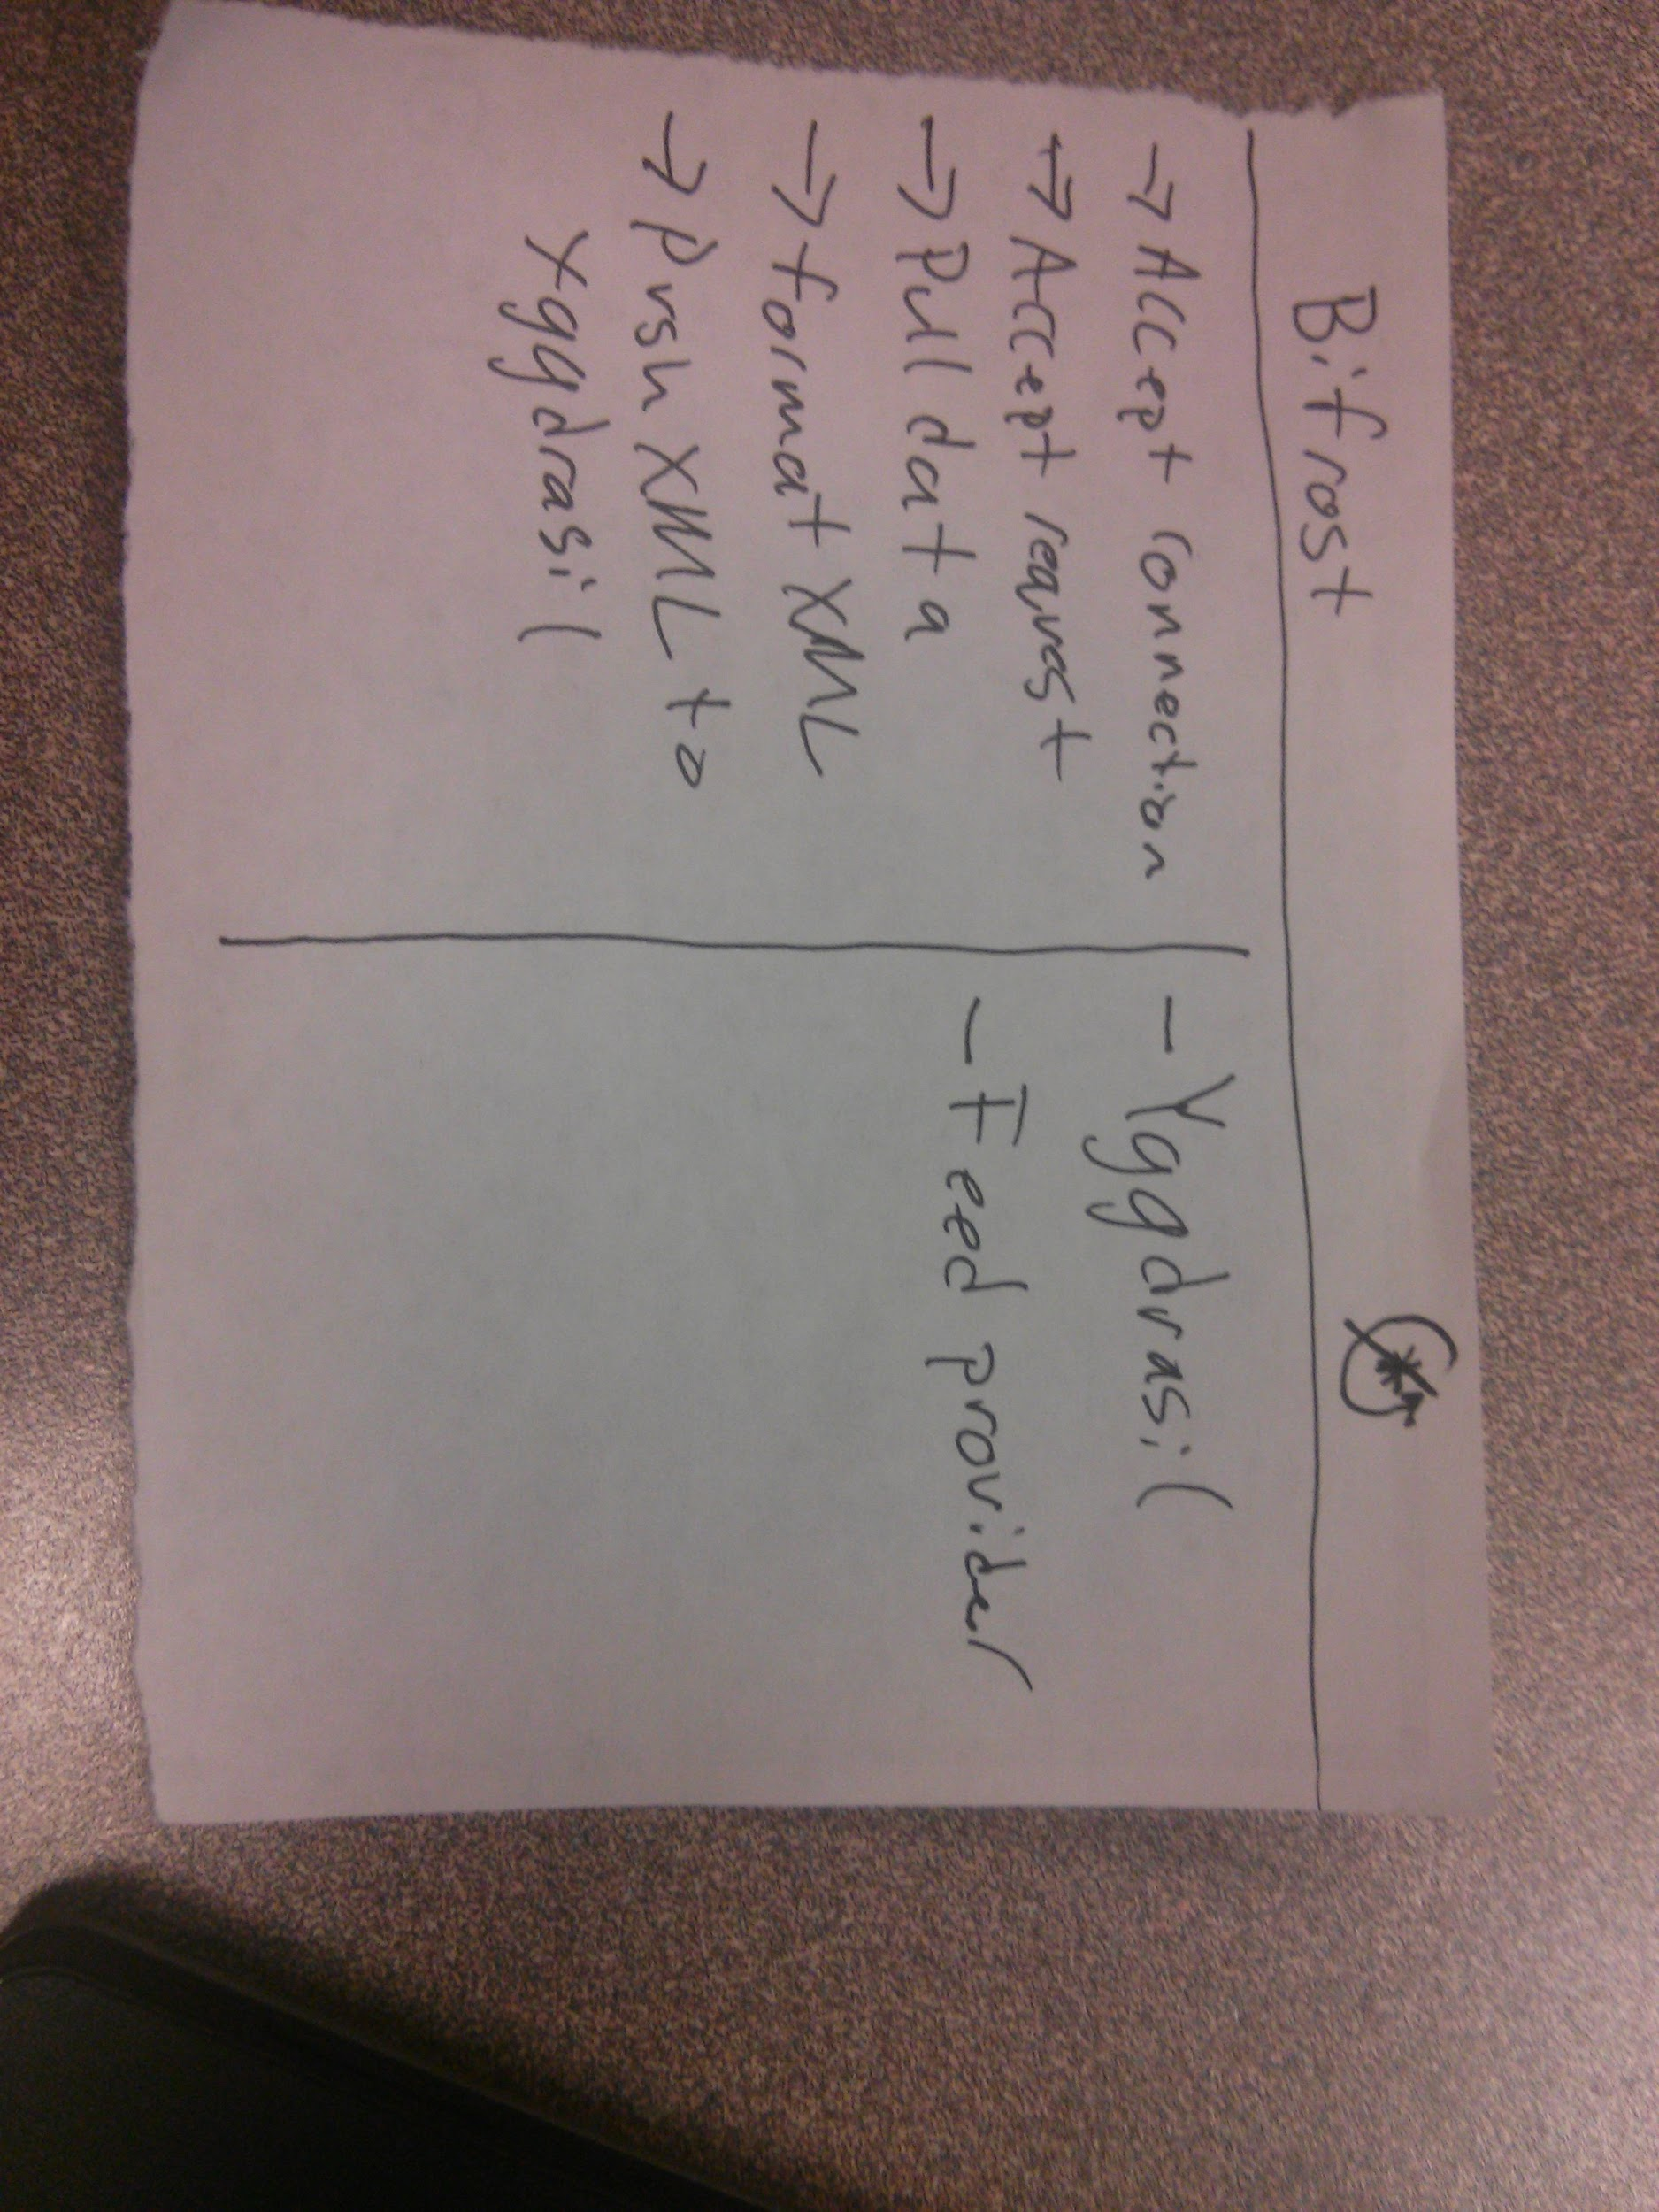 Bifrost
→ Accept connection
→ Accept request
→ Pull data
→ format XML
→ Push XML to
Yggdrasil
- Yggdrasil
- Feed provider